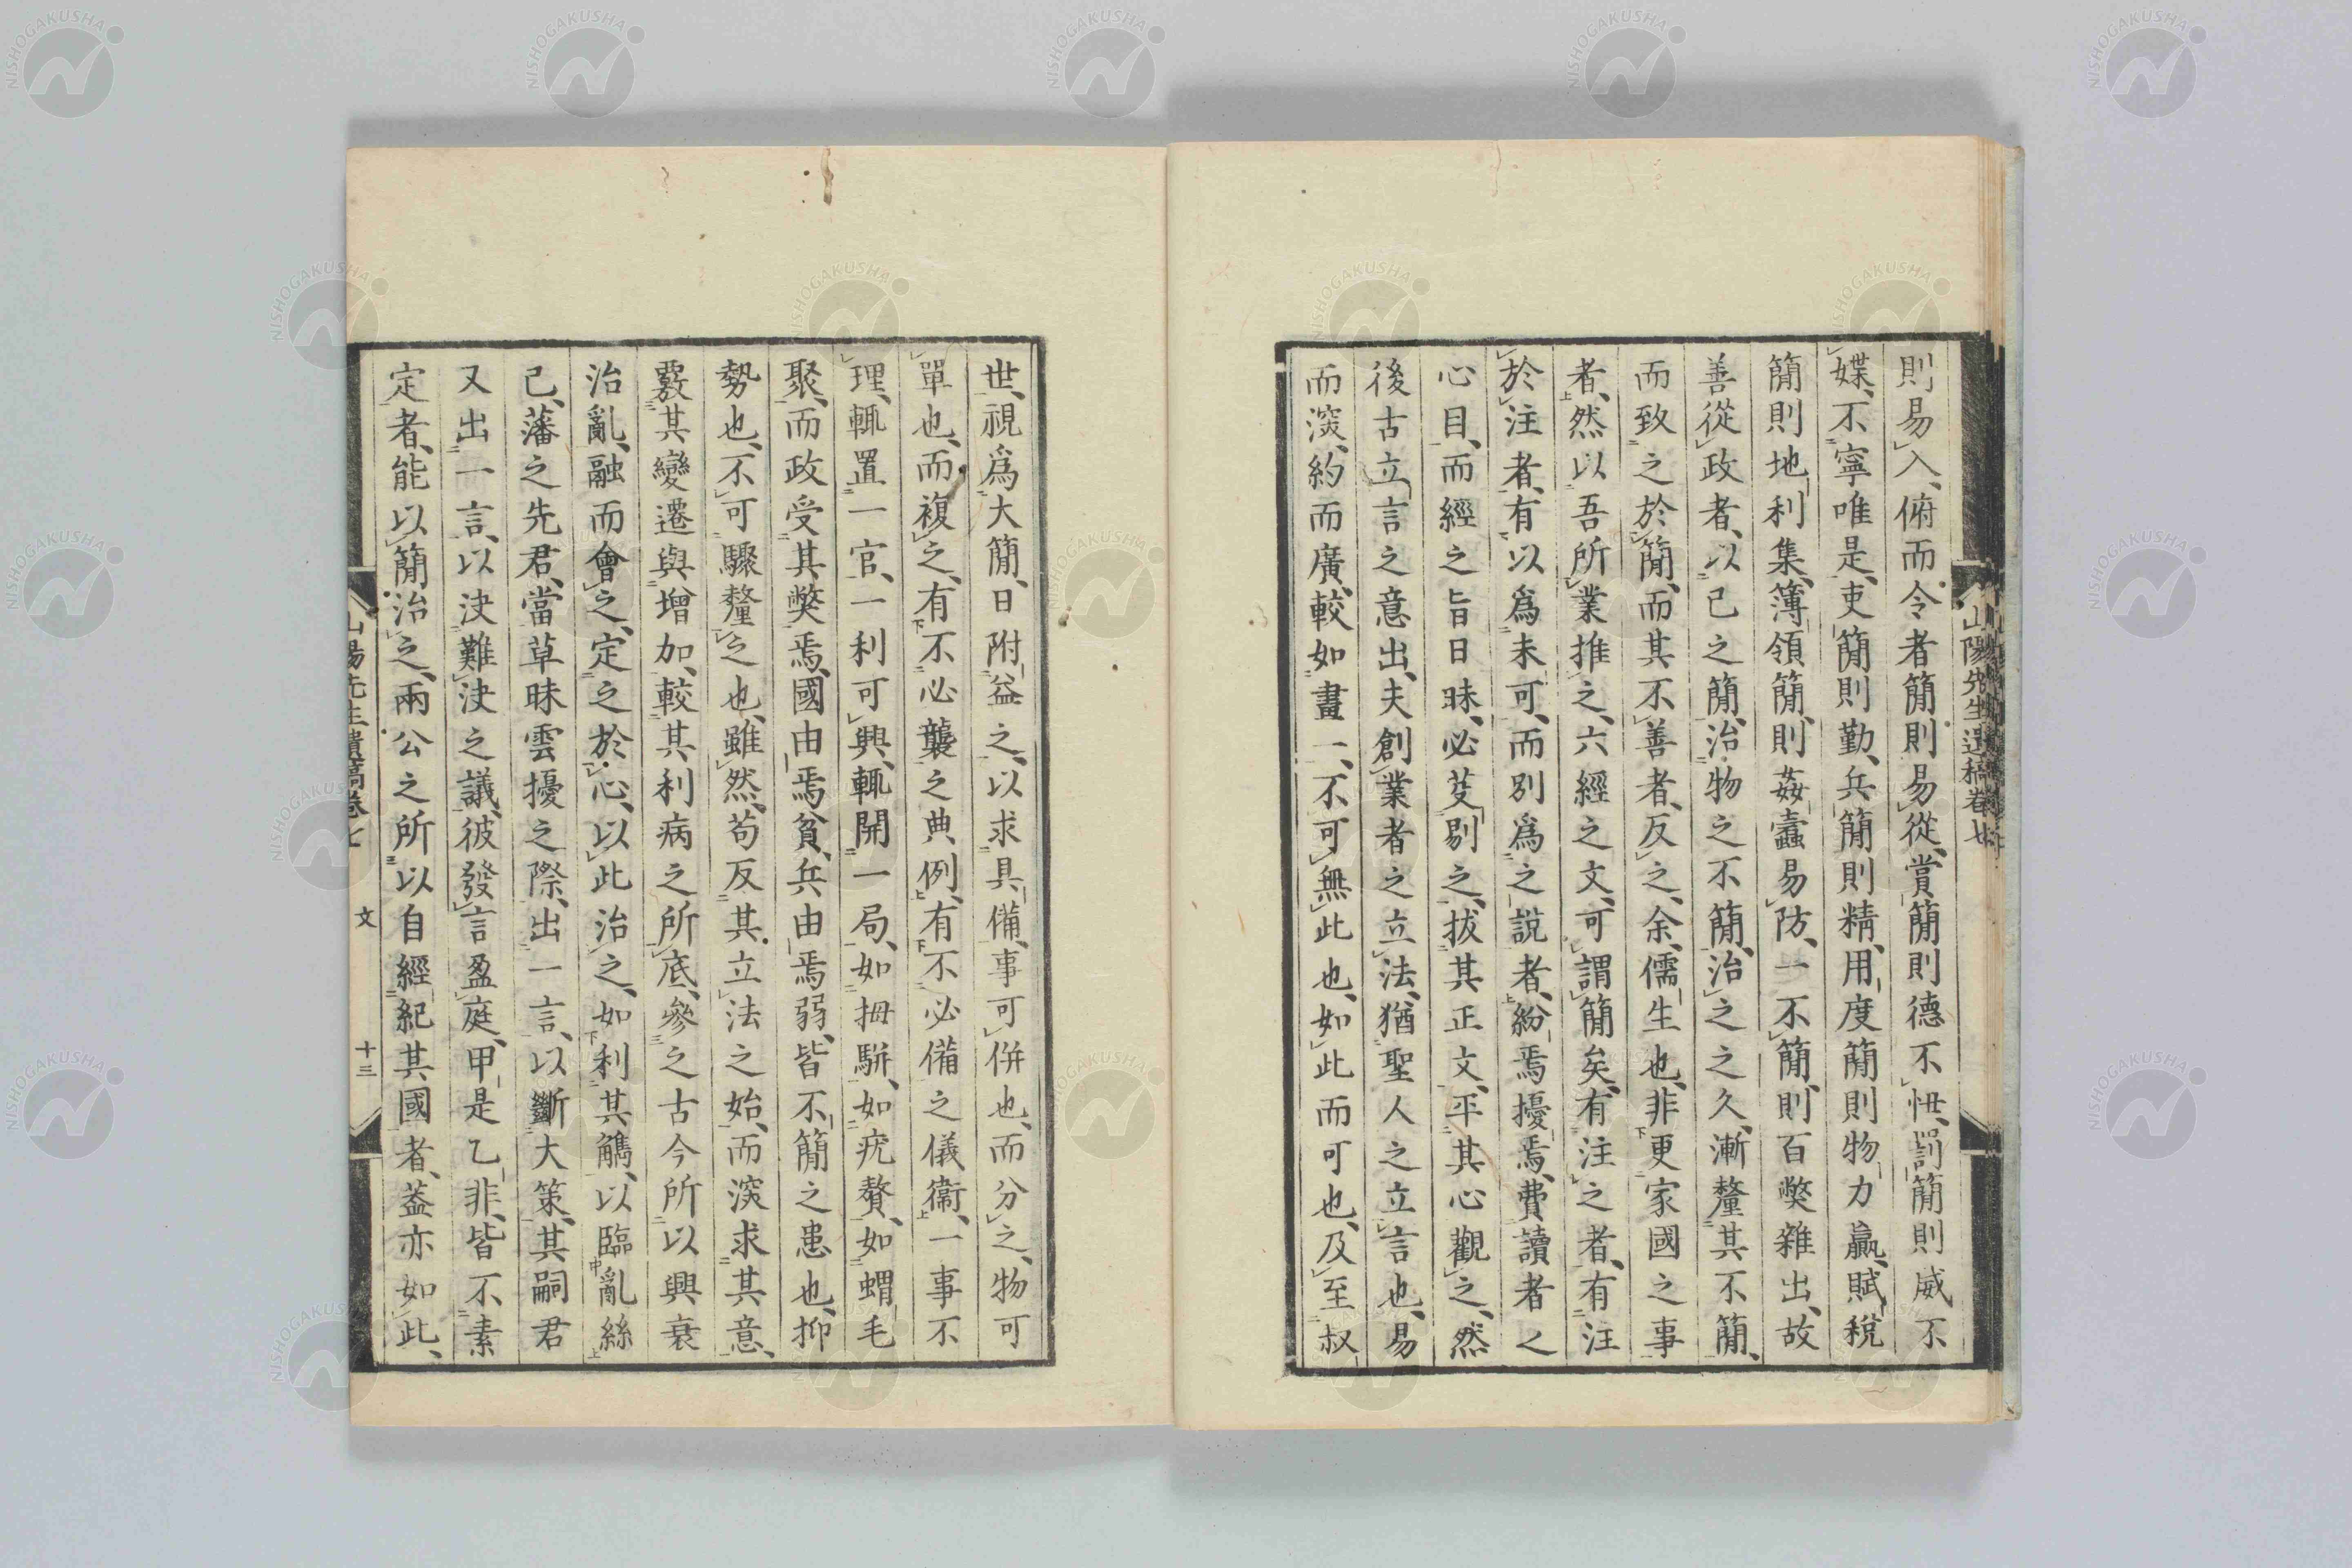 則易入、俯而令者簡則易從、賞簡則德不忸、罰簡則威不
媟、不寧唯是、吏簡則勤、兵簡則精、用度簡則物力贏、賦稅
簡則地利集、簿領簡、則姦蠹易防、一不簡、則百弊雜出、故
善從政者、以己之簡、治物之不簡、治之之久、漸釐其不簡、
而致之於簡、而其不善者、反之、余儒生也、非更家國之事
者、然以吾所業推之、六經之文、可謂簡矣、有注之者、有注
於注者、有以爲未可、而別爲之說者、紛焉擾焉、費讀者之
心目、而經之旨日昧、必芟剔之、拔其正文、平其心觀之、然
後古立言之意出、夫創業者之立法、猶聖人之立言也、易
而深、約而廣、較如畫一、不可無此也、如此而可也、及至叔
世、視爲大簡、日附益之、以求具備、事可併也、而分之、物可
單也、而複之、有不必襲之典例、有不必備之儀衞、一事不
理、輒置一官、一利可興、輒開一局、如拇駢、如疣贅、如蝟毛
聚、而政受其弊焉、國由焉貧、兵由焉弱、皆不簡之患也、抑
勢也、不可驟釐之也、雖然、苟反其立法之始、而深求其意、
覈其變遷與增加、較其利病之所底、參之古今所以興衰
治亂、融而會之、定之於心、以此治之、如利其觿、以臨亂絲
已、藩之先君、當草昧雲擾之際、出一言、以斷大策、其嗣君
又出一言、以決難決之議、彼發言盈庭、甲是乙非、皆不素
定者、能以簡治之、兩公之所以自經紀其國者、蓋亦如此、
山陽先生遺稿卷七
文
十三
山陽先生遺稿卷七
NISHOGAKUSHA